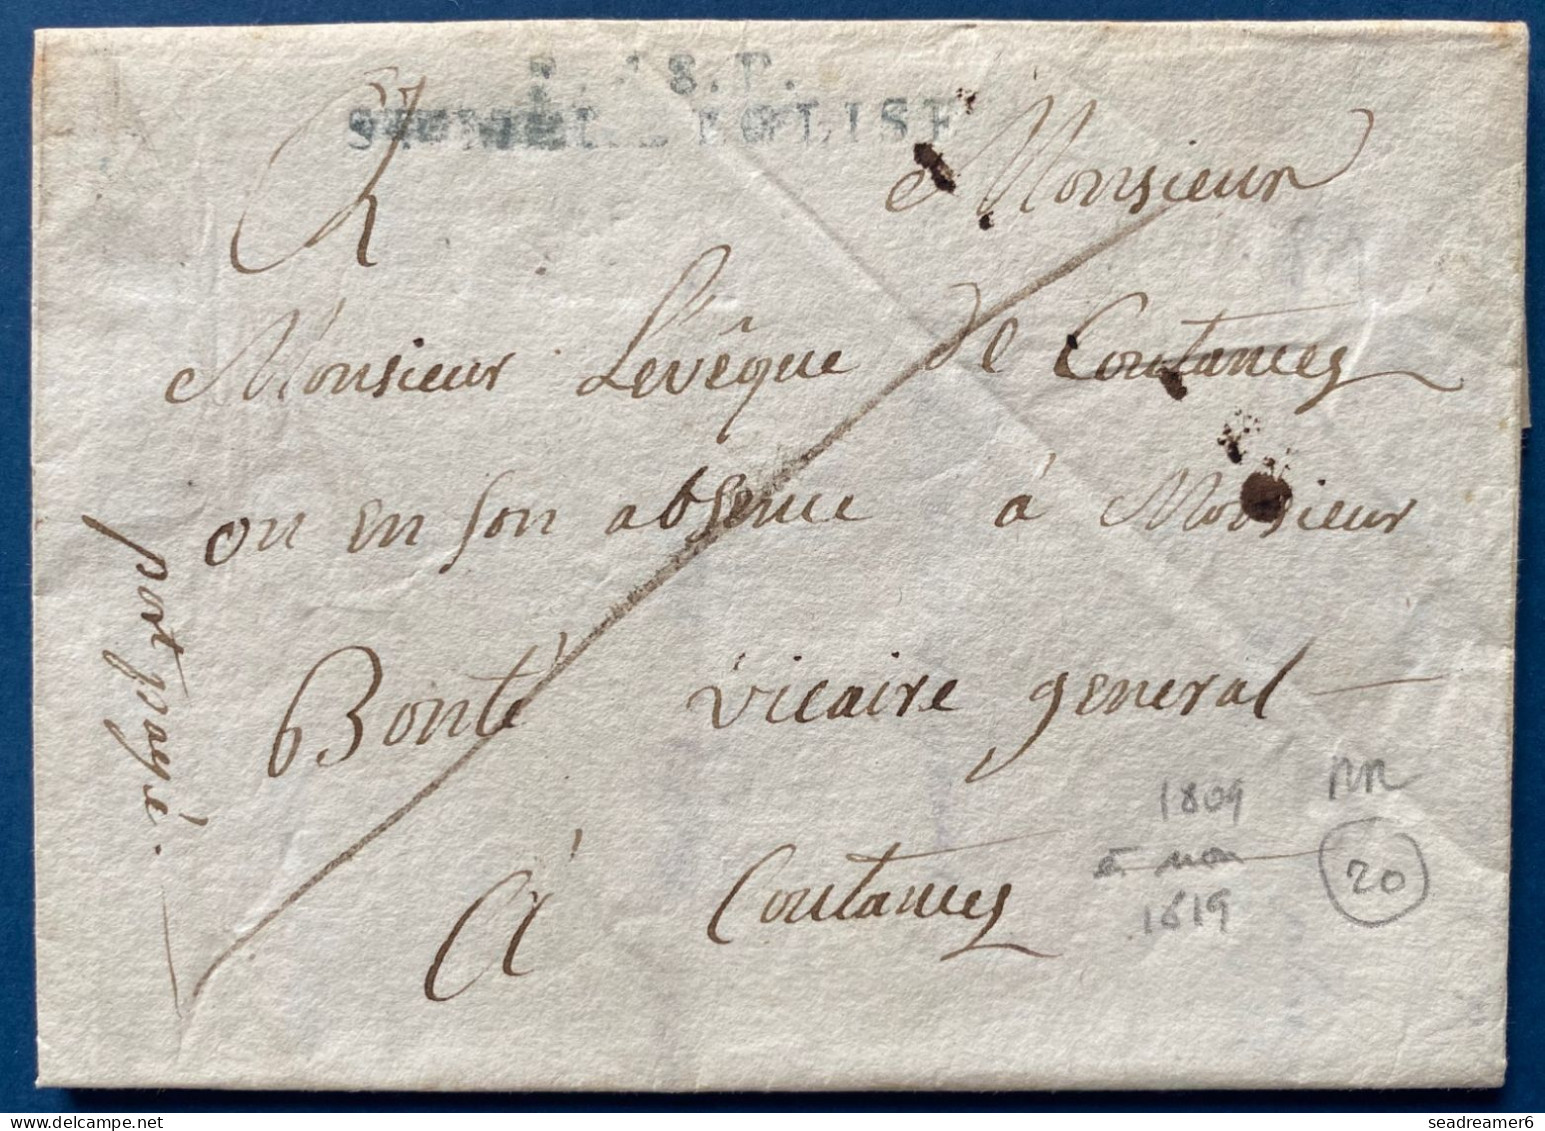 S.P.
EGLISE
A Monsieur
Monsieur Levêque de Coutances
ou en son absence à Monsieur
Bonté vicaire general
A Coutances
port payé.
1809
RR
à non
1819
20
seadreamer6